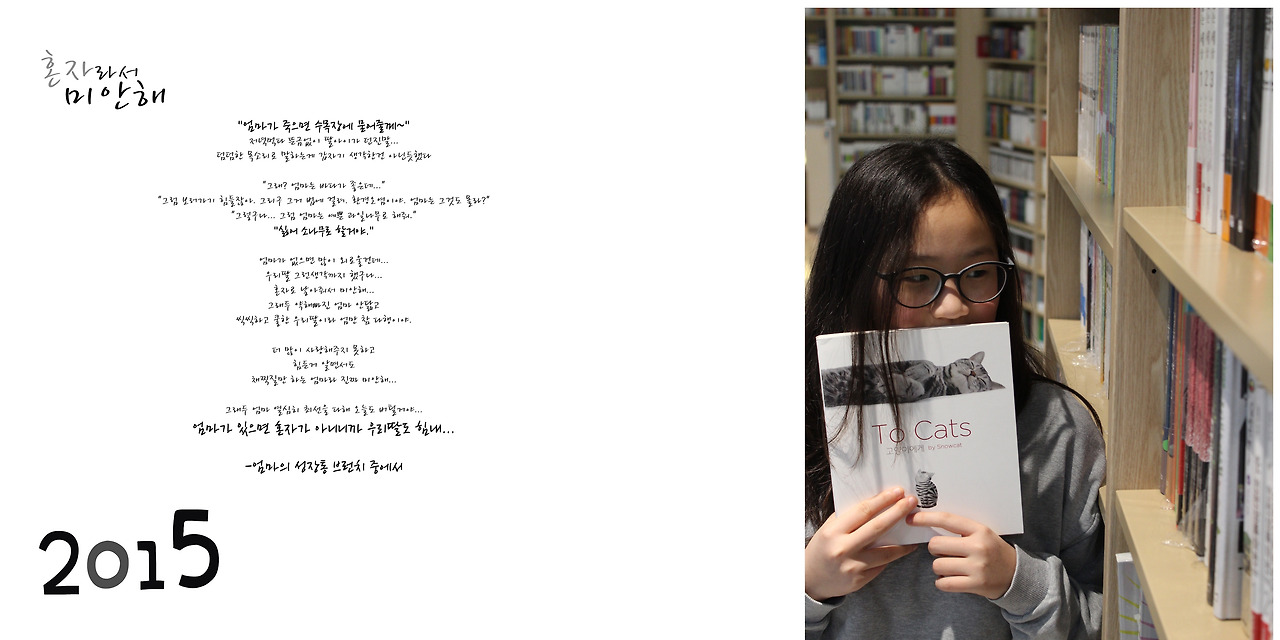 혼자라서
미안해
"엄마가 죽으면 수목장에 묻어줄께~"
저녁먹다 뜬금없이 딸아이가 던진말...
덤덤한 목소리로 말하는게 갑자기 생각한건 아닌듯했다
"그래? 엄마는 바다가 좋은데..."
"그럼 보러가기 힘들잖아. 그리구 그거 법에 걸려. 환경오염이야. 엄마는 그것도 몰라?"
"그렇구나... 그럼 엄마는 예쁜 과일나무로 해줘."
"싫어 소나무로 할거야."
엄마가 없으면 많이 외로울건데...
우리딸 그런생각까지 했구나...
혼자로 낳아줘서 미안해...
그래두 약해빠진 엄마 안닮고
씩씩하고 쿨한 우리딸이라 엄만 참 다행이야.
더 많이 사랑해주지 못하고
힘든거 알면서도
채찍질만 하는 엄마라 진짜 미안해...
그래두 엄마 열심히 최선을 다해 오늘도 버틸거야...
엄마가 있으면 혼자가 아니니까 우리딸도 힘내...
-엄마의 성장통 브런치 중에서
2015
To Cats
고양이에게 by Showcat